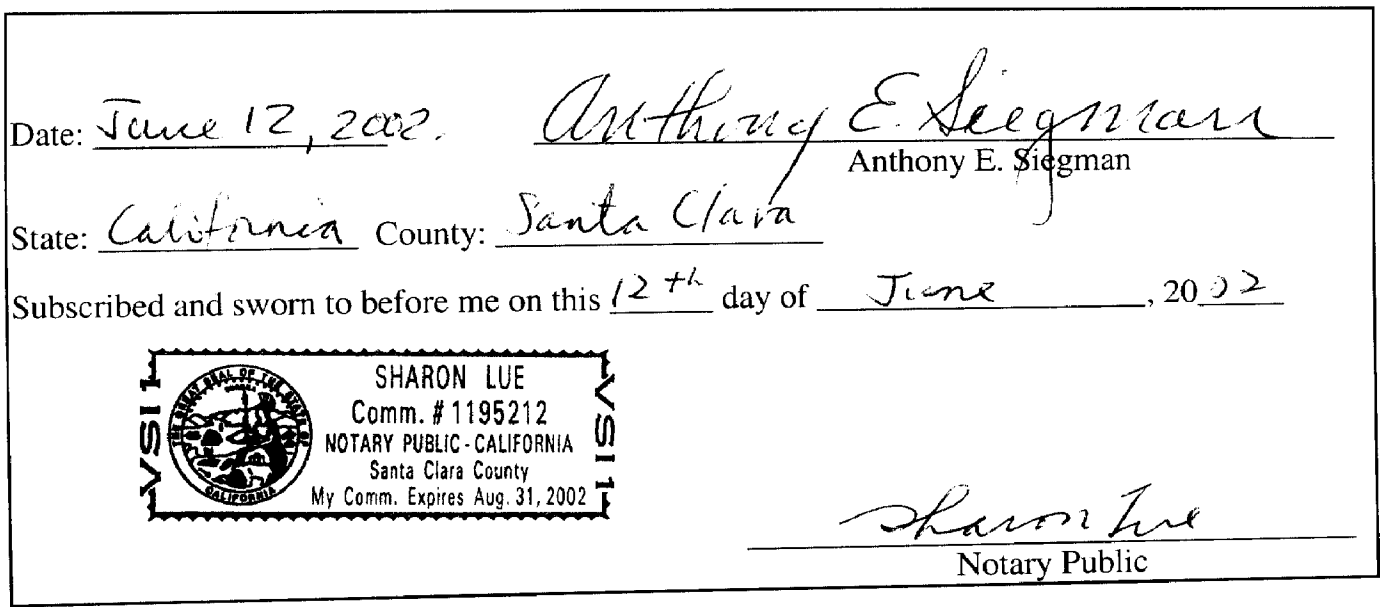 Date: June 12, 2002. Anthony E. Siegman
Anthony E. Siegman
State: California County: Santa Clara
Subscribed and sworn to before me on this 12th day of June, 2002
THE GREAT SEAL OF THE STATE OF CALIFORNIA
VSI1
SHARON LUE
Comm. # 1195212
NOTARY PUBLIC - CALIFORNIA
Santa Clara County
My Comm. Expires Aug. 31, 2002
VSI1
Sharon Lue
Notary Public